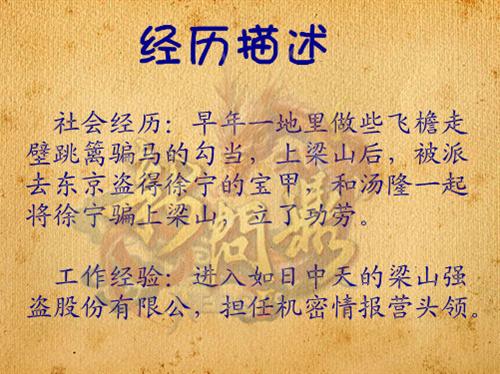 经历描述
社会经历：早年一地里做些飞檐走
壁跳篱骗马的勾当，上梁山后，被派
去东京盗得徐宁的宝甲，和汤隆一起
将徐宁骗上梁山，立了功劳。
工作经验：进入如日中天的梁山强
盗股份有限公，担任机密情报营头领。
问鼎